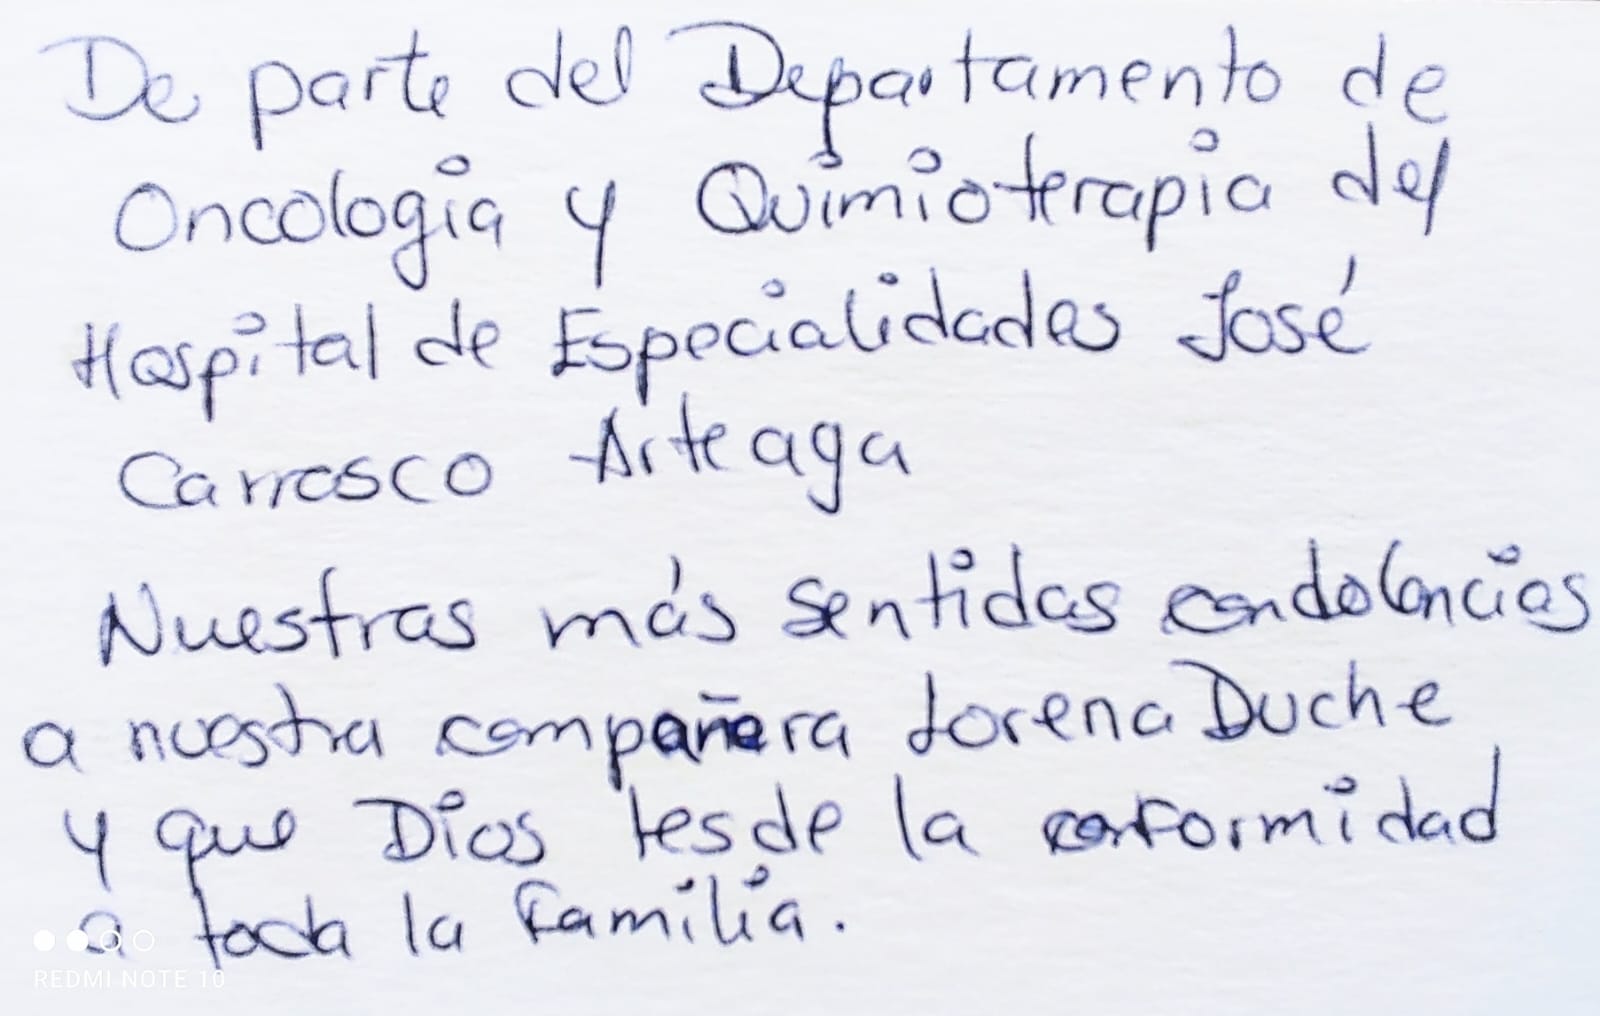 De parte del Departamento de
Oncologia y Quimioterapia del
Hospital de Especialidades José
Carrasco Arteaga
Nuestras más Sentidas condolencias
a nuestra compañera Lorena Duche
y que Dios les de la conformidad
a toda la familia.
REDMI NOTE 10